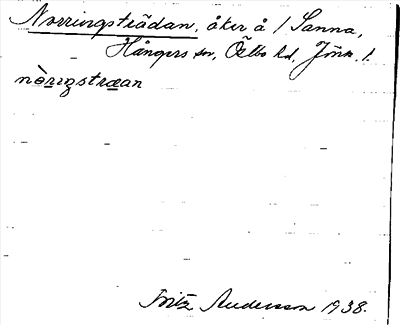 Norringsträdan, åker å / Sanna,
Hångers sn, Östbo hd, Jönk. l.
nòrıŋstræan
Fritz Andersson 1938.